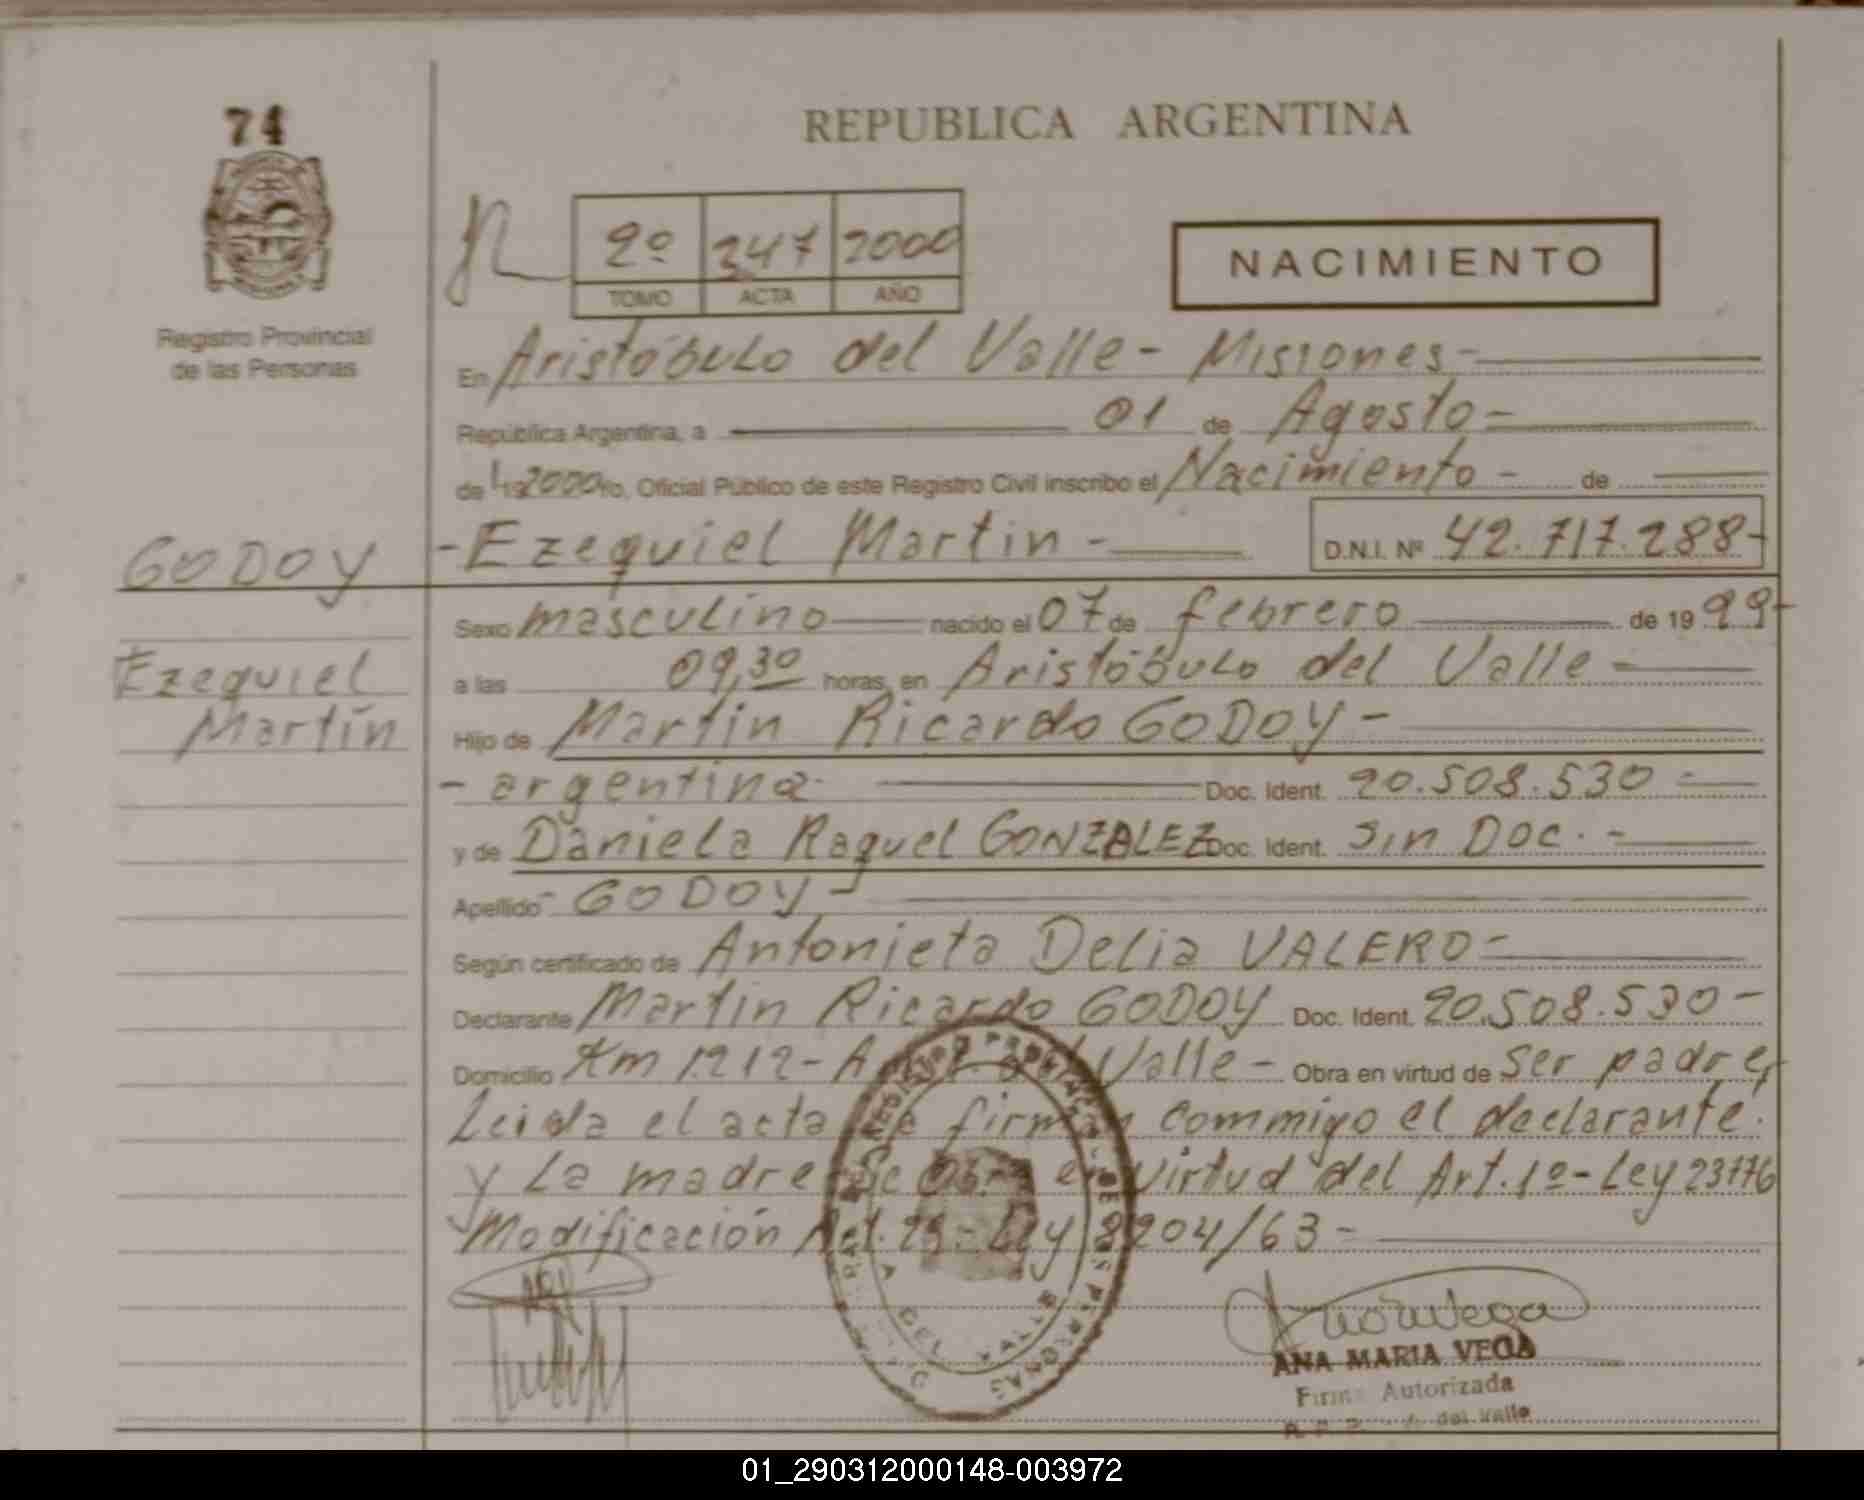 74
REPUBLICA ARGENTINA
2º 347 2000
TOMO ACTA AÑO
NACIMIENTO
Registro Provincial
de las Personas
En Aristóbulo del Valle - Misiones -
República Argentina, a 01 de Agosto -
de 2000 yo, Oficial Público de este Registro Civil inscribo el Nacimiento - de
GODOY - Ezequiel Martin - D.N.I. Nº 42.717.288-
Ezequiel
Martín
Sexo masculino nacido el 07 de febrero de 1999-
a las 09,30 horas, en Aristóbulo del Valle -
Hijo de Martin Ricardo GODOY -
- argentina - Doc. Ident. 20.508.530 -
y de Daniela Raquel GONZALEZ Doc. Ident. Sin Doc. -
Apellido GODOY -
Según certificado de Antonieta Delia VALERO -
Declarante Martin Ricardo GODOY Doc. Ident. 20.508.530 -
Domicilio Km 1212 - A del Valle - Obra en virtud de ser padre,
Leida el acta se firman commigo el declarante.
y La madre. Se obra en virtud del Art. 1º - Ley 23776
Modificación Art. 29 - Ley 8204/63 -
REGISTRO PROVINCIAL DE LAS PERSONAS
DEL VALLE
ANA MARIA VEGA
Firma Autorizada
del Valle
01_290312000148-003972